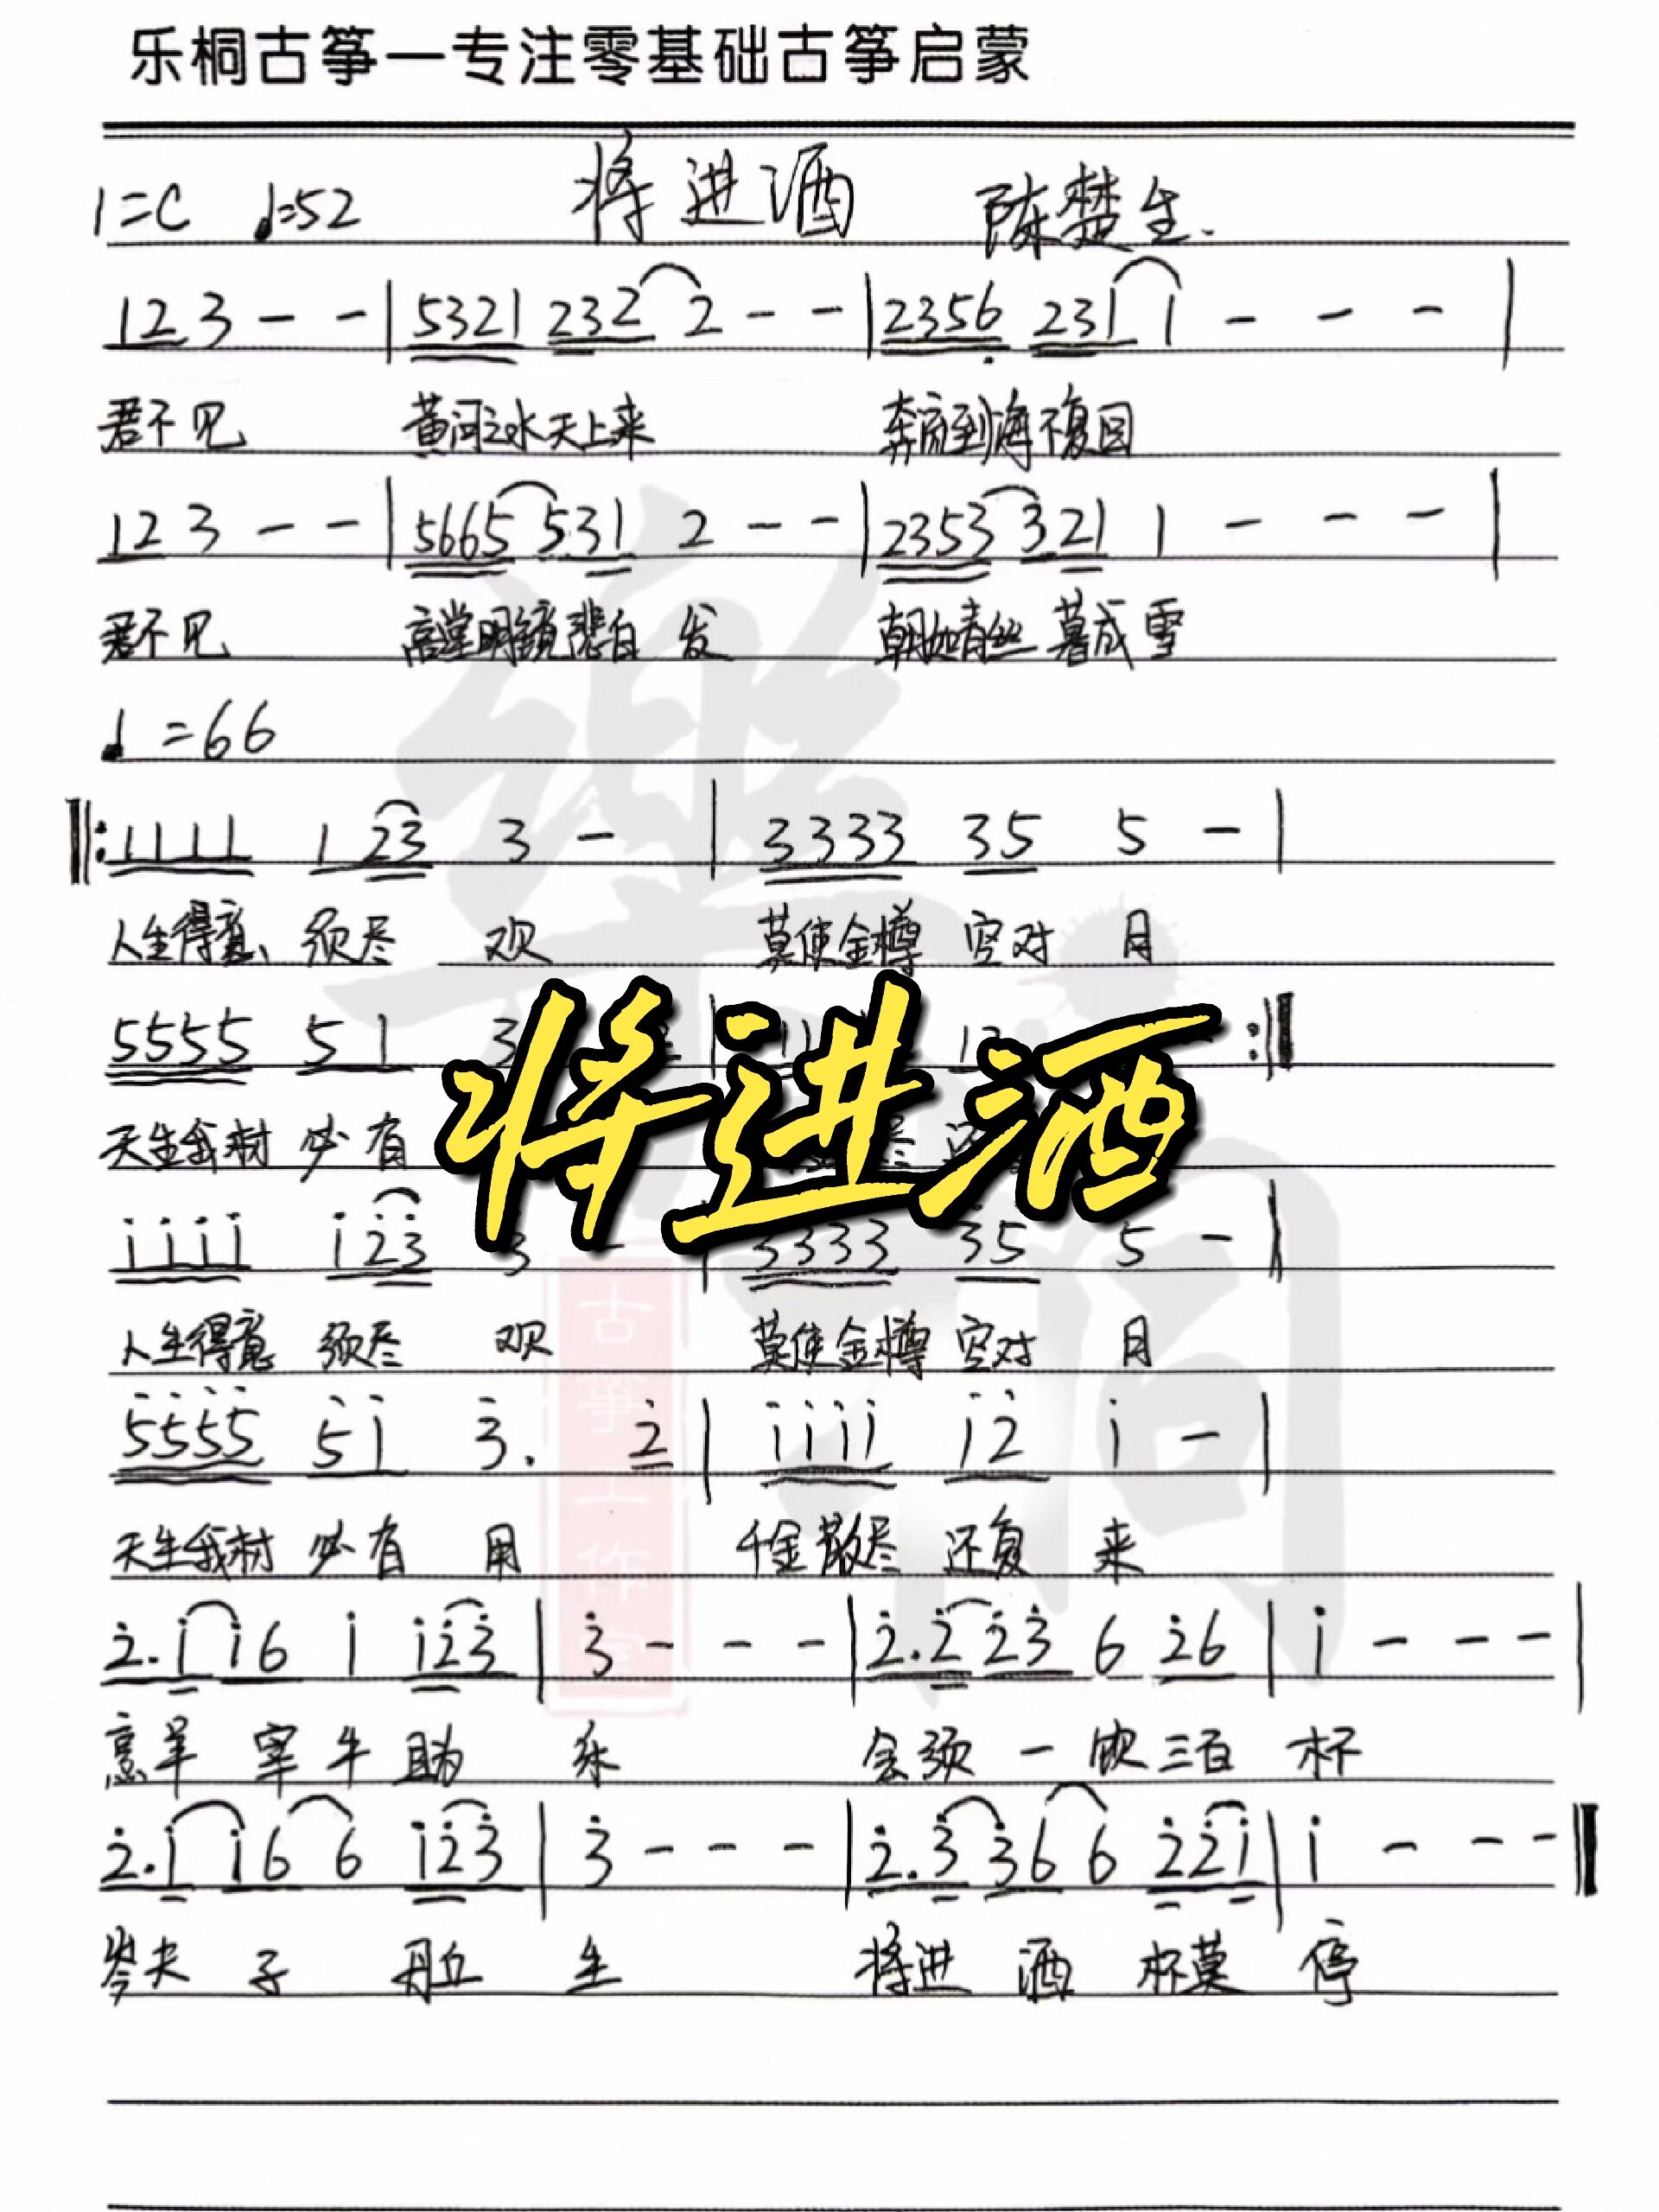 乐桐古筝—专注零基础古筝启蒙
1=C ♩=52 将进酒 陈楚生.
1 2 3 - - | 5 3 2 1 2 3 2 2 - - | 2 3 5 6 2 3 1 1 - - - |
君不见 黄河之水天上来 奔流到海不复回
1 2 3 - - | 5 6 6 5 5 3 1 2 - - | 2 3 5 3 3 2 1 1 - - - |
君不见 高堂明镜悲白 发 朝如青丝 暮成 雪
♩=66
‖: 1 1 1 1 1 2 3 3 - | 3 3 3 3 3 5 5 - |
人生得意、须尽 欢 莫使金樽 空对 月
5 5 5 5 5 1 3 | 1 1 :‖
天生我材 必有 尽 还
i i i i i 2̇ 3̇ 3 - | 3 3 3 3 3 5 5 - |
人生得意 须尽 欢 莫使金樽 空对 月
5̇ 5̇ 5̇ 5̇ 5̇ i 3̇. 2̇ | i i i i i 2̇ i - |
天生我材 必有 用 千金散尽 还复 来
2̇. i i 6 i i 2̇ 3̇ | 3̇ - - - | 2̇. 2̇ 2̇ 3̇ 6 2̇ 6 | i - - - |
烹羊 宰牛 助 乐 会须 一 饮 三百 杯
2̇. i i 6 6 i 2̇ 3̇ | 3̇ - - - | 2̇. 3̇ 3̇ 6 6 2̇ 2̇ i | i - - - ‖
岑夫 子 丹丘 生 将进 酒 杯莫 停
将进酒
古筝工作室